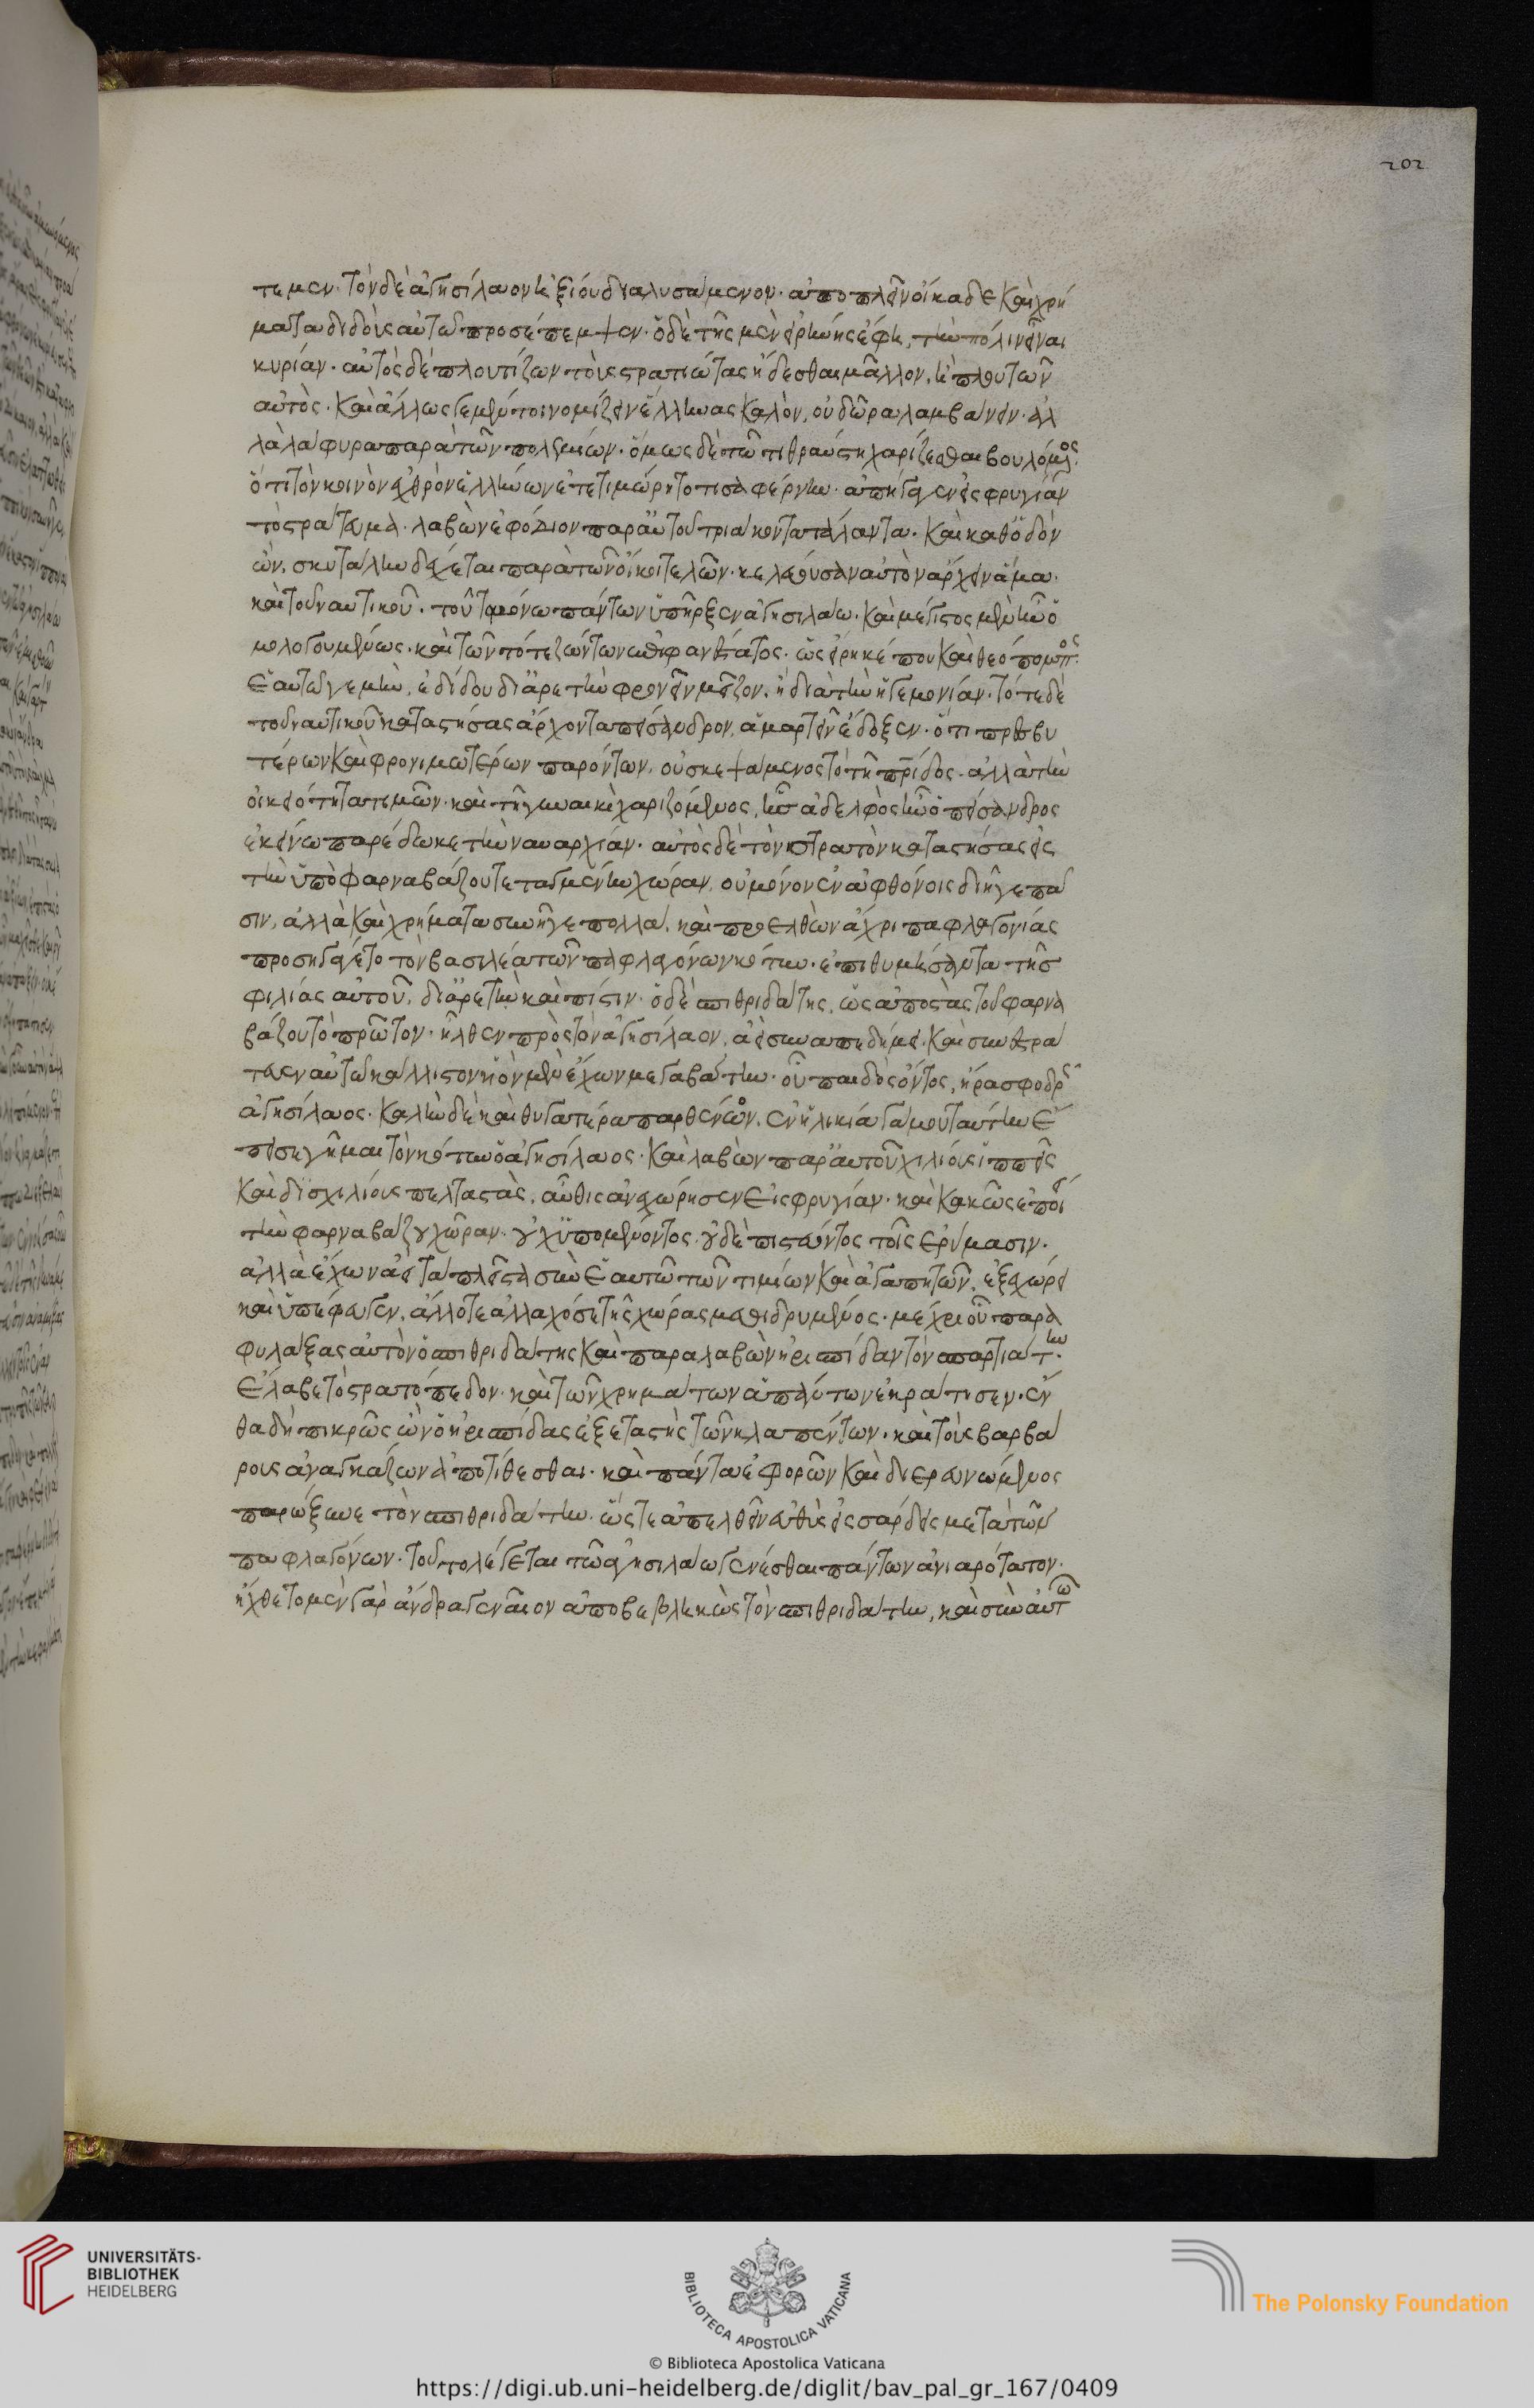 202
τεμεν· τὸν δὲ ἀγησίλαον ἠξίου διαλυσάμενον· ἀποπλεῖν οἴκαδε καὶ χρή
ματα διδοὺς αὐτῶ προσέπεμψεν· ὁ δὲ τῆς μὲν εἰρήνης ἔφη, τὴν πόλιν εἶναι
κυρίαν· αὐτὸς δὲ πλουτίζων τοὺς στρατιώτας ἥδεσθαι μᾶλλον, ἢ πλουτῶν
αὐτὸς· καὶ ἄλλως γε μέντοι νομίζειν ἕλληνας καλὸν, οὐ δῶρα λαμβάνειν· ἀλ
λὰ λάφυρα παρὰ τῶν πολεμίων· ὅμως δὲ τῶ τιθραύστη χαρίζεσθαι βουλόμενος·
ὅτι τὸν κοινὸν ἐχθρὸν ἑλλήνων ἐτετιμώρητο τισαφέρνην· ἀπήγαγεν εἰς φρυγίαν
τὸ στράτευμα· λαβὼν ἐφόδιον παρ' αὐτοῦ τριάκοντα τάλαντα· καὶ καθ' ὁδὸν
ὢν, σκυτάλην δέχεται παρὰ τῶν οἴκοι τελῶν· κελεύουσαν αὐτὸν ἄρχειν ἅμα·
καὶ τοῦ ναυτικοῦ· τοῦτο μόνω πάντων ὑπῆρξεν ἀγησιλάω· καὶ μέγιστος μὲν ἦν ὁ
μολογουμένως· καὶ τῶν τότε ζώντων ἐπιφανέστατος· ὡς εἴρηκέ που καὶ θεόπομπος·
ἑαυτῶ γε μὴν, ἐδίδου δι' ἀρετὴν φρονεῖν μεῖζον, ἢ διὰ τὴν ἡγεμονίαν· τότε δὲ
τοῦ ναυτικοῦ καταστήσας ἄρχοντα πείσανδρον, ἁμαρτεῖν ἔδοξεν· ὅτι πρεσβυ
τέρων καὶ φρονιμωτέρων παρόντων, οὐ σκεψάμενος τὸ τῆς πρίδος· ἀλλὰ τὴν
οἰκειότητα τιμῶν· καὶ τῆ γυναικὶ χαριζόμενος, ἧς ἀδελφὸς ἦν ὁ πείσανδρος
ἐκείνω παρέδωκε τὴν ναυαρχίαν· αὐτὸς δὲ τὸν στρατὸν καταστήσας εἰς
τὴν ὑπὸ φαρναβάζου τεταγμένην χώραν, οὐ μόνον ἐν ἀφθόνοις διῆγε πᾶ
σιν, ἀλλὰ καὶ χρήματα συνῆγε πολλά, καὶ προελθὼν ἄχρι παφλαγονίας
προσηγάγετο τὸν βασιλέα τῶν παφλαγόνων κότυν· ἐπιθυμήσαντα τῆς
φιλίας αὐτοῦ, δι' ἀρετὴν καὶ πίστιν· ὁ δὲ σπιθριδάτης, ὡς ἀποστὰς τοῦ φαρνα
βάζου τὸ πρῶτον· ἦλθεν πρὸς τὸν ἀγησίλαον, ἀεὶ συναπεδήμει· καὶ συνεστρά
τευεν αὐτῶ κάλλιστον υἱὸν μὲν ἔχων μεγαβάτην· οὗ παιδὸς ὄντος, ἤρα σφοδρῶς
ἀγησίλαος· καλὴν δὲ καὶ θυγατέρα παρθένον, ἐν ἡλικία γάμου ταύτην ἔ
πεισε γῆμαι τὸν κότυν ὁ ἀγησίλαος· καὶ λαβὼν παρ' αὐτοῦ χιλίους ἱππεῖς
καὶ δισχιλίους πελταστὰς, αὖθις ἀνεχώρησεν εἰς φρυγίαν· καὶ κακῶς ἐποίει
τὴν φαρναβάζου χώραν· οὐχ ὑπομένοντος, οὐδὲ πιστεύοντος τοῖς ἐρύμασιν·
ἀλλὰ ἔχων ἀεὶ τὰ πλεῖστα σὺν ἑαυτῶ τῶν τιμίων καὶ ἀγαπητῶν, ἐξεχώρει
καὶ ὑπέφευγεν, ἄλλοτε ἀλλαχόσε τῆς χώρας μεθιδρυμένος· μέχρι οὗ παρα
φυλάξας αὐτὸν ὁ σπιθριδάτης καὶ παραλαβὼν ἡριππίδαν τὸν σπαρτιάτην·
ἔλαβε τὸ στρατόπεδον· καὶ τῶν χρημάτων ἁπάντων ἐκράτησεν· ἔν
θα δὴ πικρὸς ὢν ὁ ἡριππίδας ἐξεταστὴς τῶν κλαπέντων· καὶ τοὺς βαρβά
ρους ἀναγκάζων ἀποτίθεσθαι· καὶ πάντα ἐφορῶν καὶ διερευνώμενος
παρώξυνε τὸν σπιθριδάτην· ὥστε ἀπελθεῖν εὐθὺς εἰς σάρδεις μετὰ τῶν
παφλαγόνων· τοῦτο λέγεται τῶ ἀγησιλάω γενέσθαι πάντων ἀνιαρότατον·
ἤχθετο μὲν γὰρ ἄνδρα γενναῖον ἀποβεβληκὼς τὸν σπιθριδάτην, καὶ σὺν αὐτῶ
UNIVERSITÄTS-
BIBLIOTHEK
HEIDELBERG
BIBLIOTECA APOSTOLICA VATICANA
The Polonsky Foundation
© Biblioteca Apostolica Vaticana
https://digi.ub.uni-heidelberg.de/diglit/bav_pal_gr_167/0409